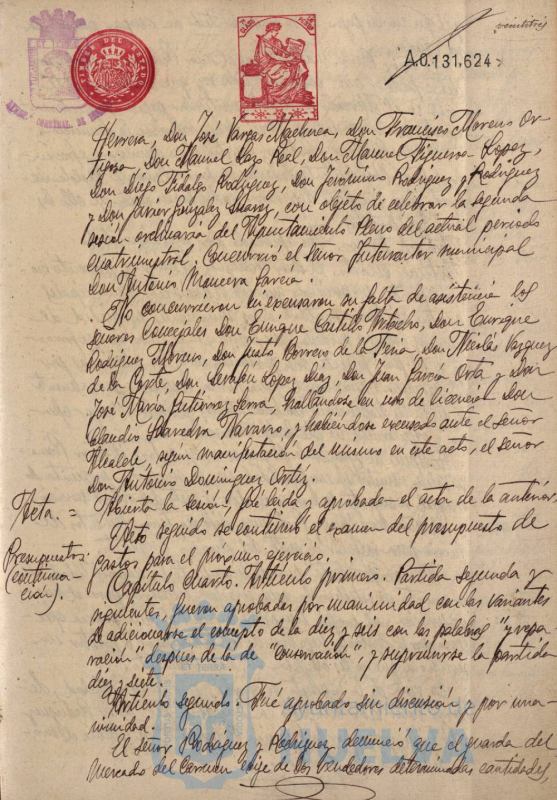 veintitrés
TIMBRE DEL ESTADO
A.0.131,624
Herrera, Don José Vargas Machuca, Don Francisco Moreno Or-
tigosa, Don Manuel Pazo Real, Don Manuel Figueroa López,
Don Diego Fidalgo Rodríguez, Don Jerónimo Rodríguez y Rodríguez
y Don Javier González Suarez, con objeto de celebrar la segunda
sesión ordinaria del Ayuntamiento Pleno del actual periodo
cuatrimestral. Concurrió el señor Interventor municipal
Don Antonio Mancera García.
No concurrieron ni excusaron su falta de asistencia los
señores Concejales Don Enrique Castillo, Don Enrique
Rodríguez Moreno, Don Justo Borrero de la Feria, Don Nicolás Vázquez
de la Corte, Don Serafín López Díaz, Don Juan García Orta y Don
José María Gutiérrez Serra, hallándose en uso de licencia Don
Claudio Saavedra Navarro, y habiéndose excusado ante el señor
Alcalde, según manifestación del mismo en este acto, el señor
Don Antonio Domínguez Ortiz.
Acta.= Abierta la sesión, fué leída y aprobada el acta de la anterior.
Acto seguido se continuó el examen del presupuesto de
Presupuestos: gastos para el próximo ejercicio.
(continua-
ción).
Capítulo cuarto. Artículo primero. Partida segunda y
siguientes, fueron aprobadas por unanimidad con las variantes
de adicionarse el concepto de la diez y seis con las palabras "y repa-
ración" después de la de "conservación", y suprimirse la partida
diez y siete.
Artículo segundo. Fué aprobado sin discusión y por una-
nimidad.
El señor Rodríguez y Rodríguez denunció que el guarda del
Mercado del Carmen exije de los vendedores determinadas cantidades
HUELVA